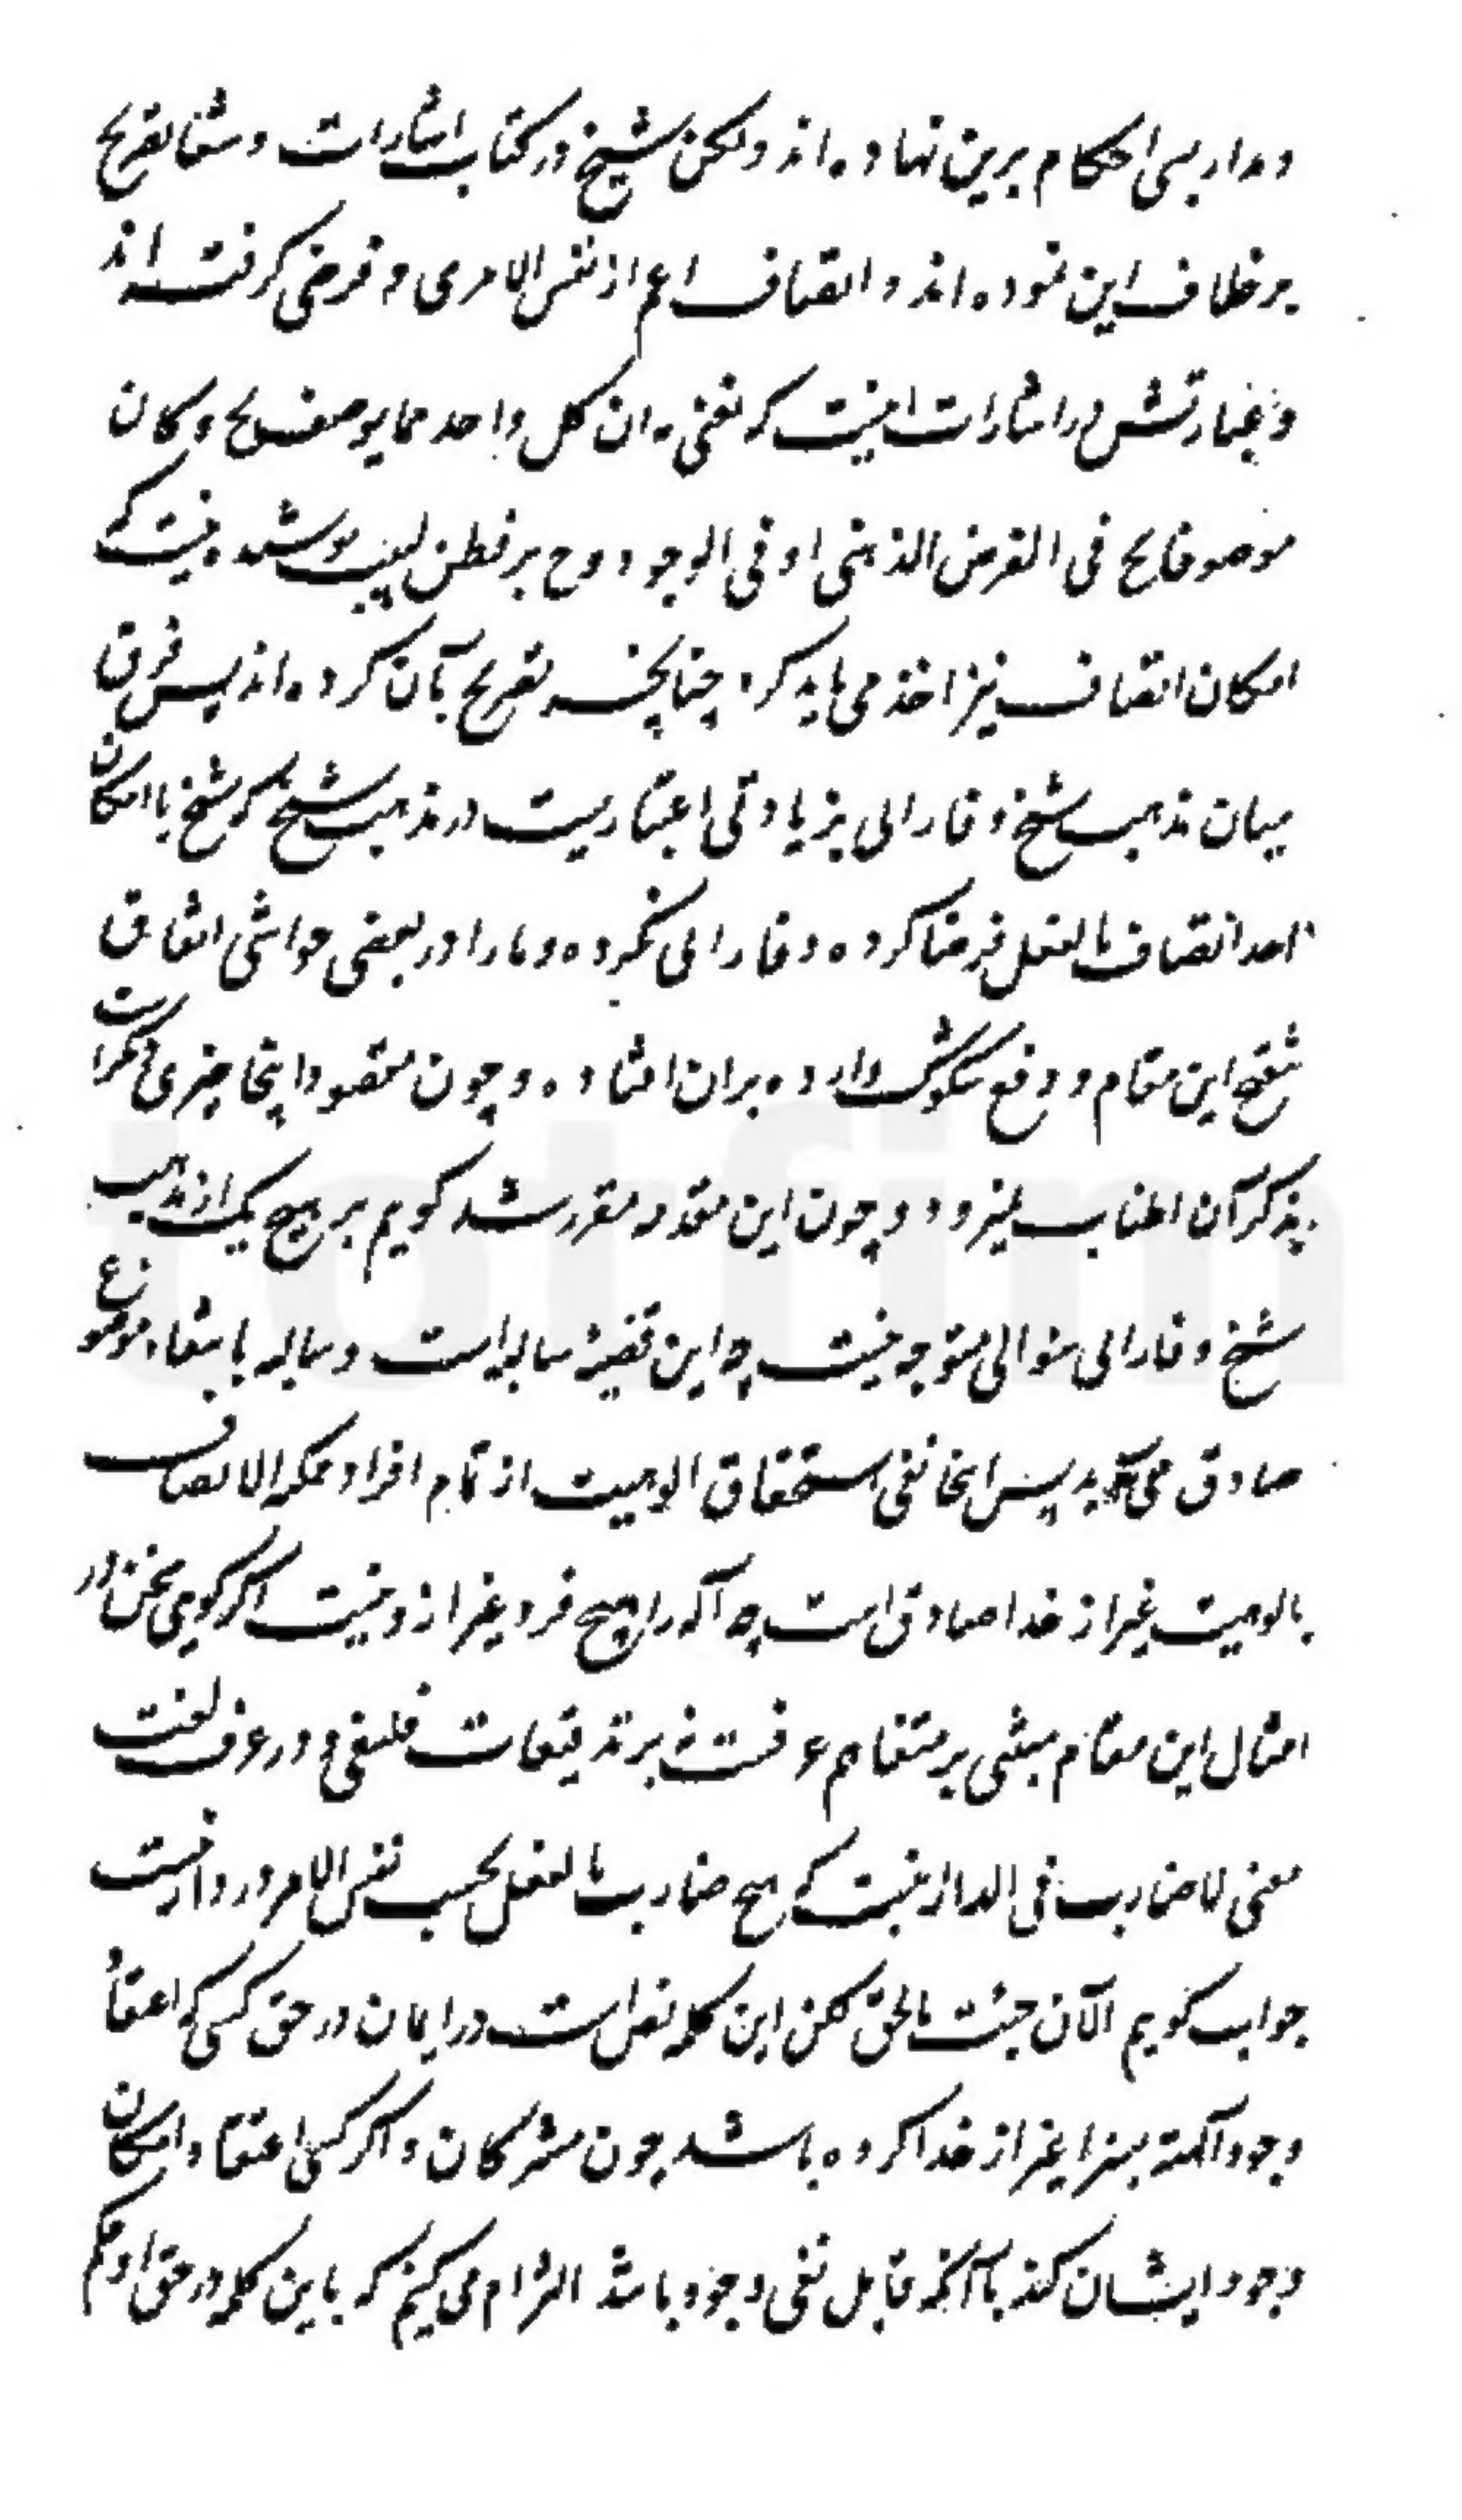 و مدار بسی احکام برین نهاده اند ولکن شیخ در کتاب اشارات و شفا تصریح
بر خلاف این نموده اند و اتصاف اعم از نفس الامری و فرضی گرفته اند
و عبارتش در اشارات اینست که نعنی به ان کل واحد مما یوصف بج و کان
موصوفا بج فی الفرض الذهنی او فی الوجود و ح بر فطن لبیب پوشیده نیست که
امکان اتصاف نیز اخذ می باید کرد چنانچه تصریح بآن کرده اند پس فرق
میان مذهب شیخ و فارابی بزیادتی اعتباریست در مذهب شیخ که شیخ با امکان
اخذ اتصاف بالفعل فرضا کرده و فارابی نکرده و ما را در بعضی حواشی اتفاق
تنقیح این مقام و دفع شکوک وارده بران افتاده و چون مقصود اینجا چیزی دیگر است
بذکر آن اطناب نیفزود و چون این مقدمه مقرر شد گویم بر هیچ یک از مذهب
شیخ و فارابی سوالی متوجه نیست چه این قضیه سالبه است و سالبه بانتفاء موضوع
صادق می آید پس اینجا نفی استحقاق الوهیت از تمام افراد ممکن الاتصاف
بالوهیت غیر از خدا صادق است چه آله را هیچ فرد غیر از و نیست اگر گویی سخن در
امثال این مقام مبتنی بر متفاهم عرفست نه بر تدقیقات فلسفی و در عرف لغت
معنی لاضارب فی الدار اینست که هیچ ضارب بالفعل بحسب نفس الامر در دار نیست
جواب گویم الآن جئت بالحق لکن این کلمه نص است در ایمان در حق کسی که اعتقاد
وجود آلهة بسزا غیر از خدا کرده باشد چون مشرکان و اگر کسی اعتقاد امکان
وجود ایشان کند با آنکه قابل نفی وجود باشد التزام می کنیم که باین کلمه در حق او حکم